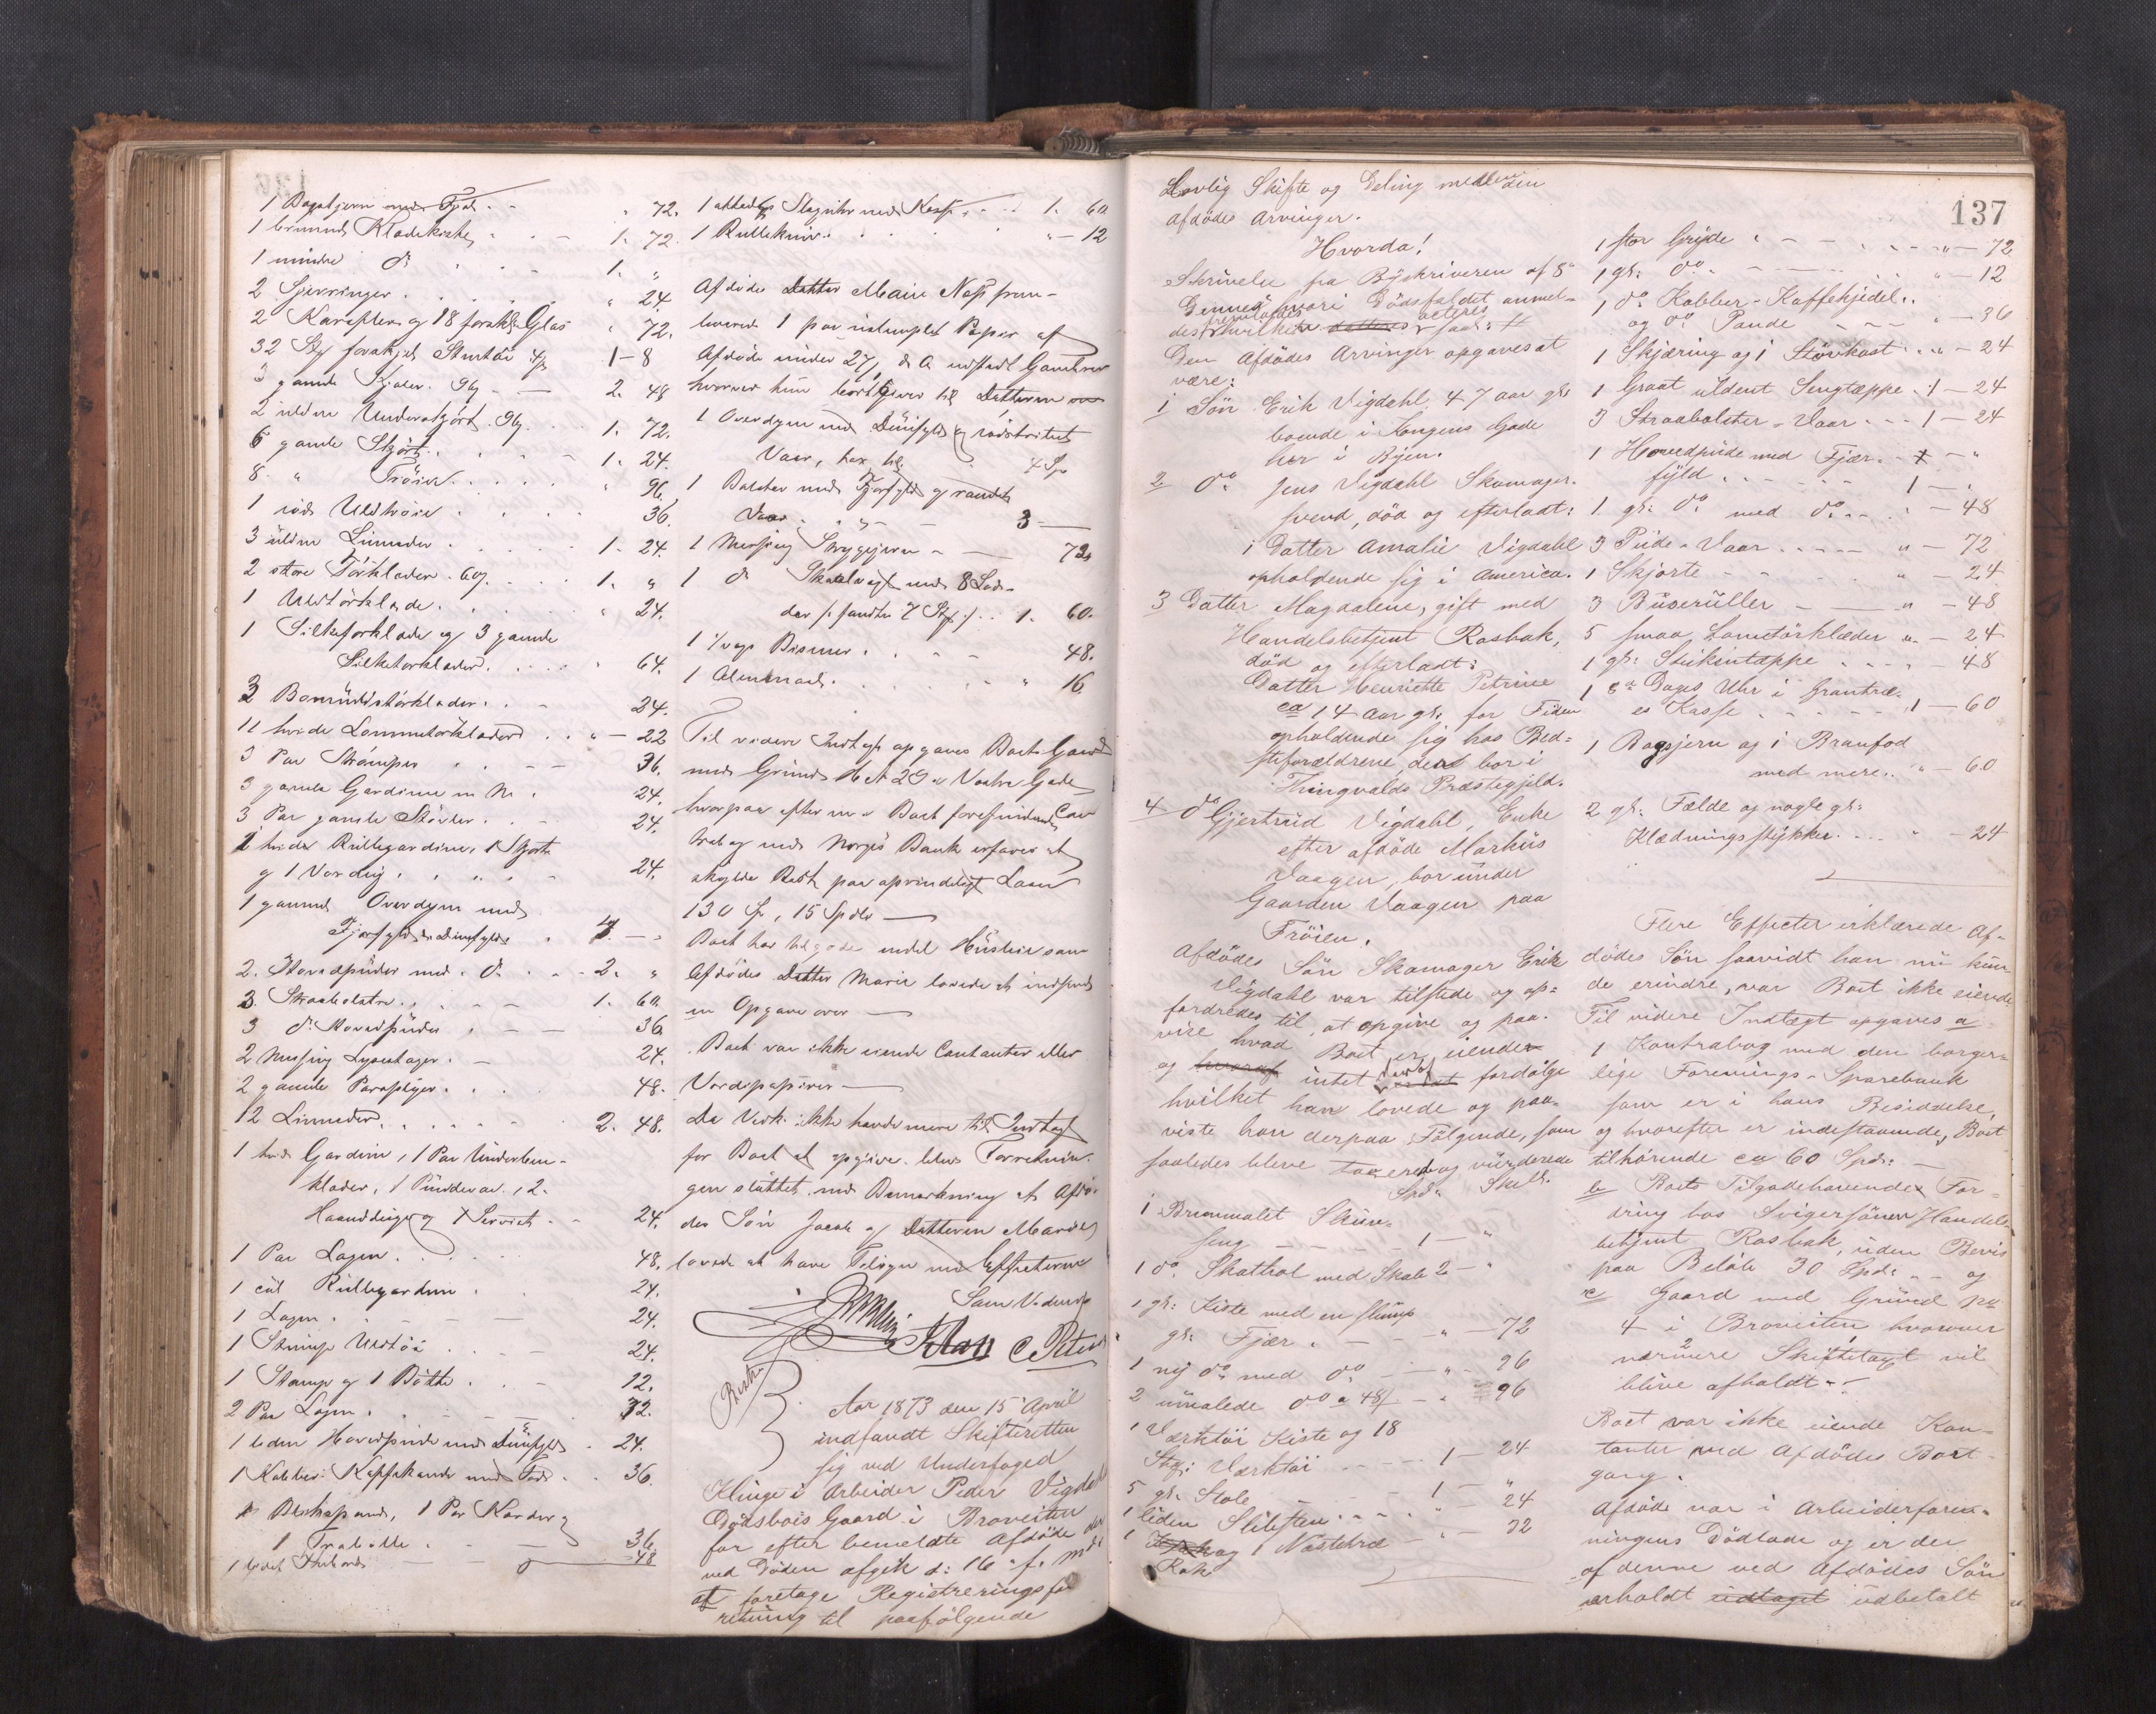 1 Bagstjern med Fjel . . " 72.
1 brunmal. Klædekiste . . - 1. 72.
1 mindre do . . - 1. "
2 . . . " 24.
2 Karafler og 18 forskjl. Glas " 72.
32 Stkr forskjel. 1-8
3 gamle Kjoler. - 2. 48
2 uldne Underskjørt. . . 1. 72.
6 gamle Skjørt. . . . 1. 24.
8 " Trøier. . . . . " 96.
1 rød Uldtrøie . . . . 36.
3 uldne . . . 1. 24.
2 store Törklæder. . . 1. "
1 Uldtörklæde. . . . " 24.
1 Silketorklæde og 3 gamle
Silketorklæder. . . . " 64.
3 Bomuldstörklæder. . - 24.
11 hvide Lommetörklæder . . " - 22
3 Par Strömper . . - - 36.
3 gamle Gardiner m. M. . 24.
3 Par gamle Stövler. . - 24.
2 hvide Rullegardiner, 1 Skjorte
og 1 . . . " - 24.
1 gammel Overdyne med
Fjærfyld . 4. - "
2. Hovedpuder med do . - - 2. "
3. Straabolstre. . . - - 1. 60.
3 do Hovedpuder . - - 36.
2 Messing Lysestager. - 24.
2 gamle Paraplyer. . . 48.
12 . . . . . 2. 48.
1 hvid Gardin, 1 Par Underben-
klæder, 1 Pudevar, 2.
Haandduge og 1 Serviet . - 24.
1 Par Lagen. . . . 48.
1 Rullegardin . . 24.
1 Lagen . . - - - 24.
1 Uldtöi . . . . 24.
1 Stamp og 1 Bötte . . - 12.
2 Par Lagen . . . . 72.
1 liden Hovedpude med Duunfyld - 24.
1 Kobber Kaffekande med . . 36.
1 Par Karder og
1 . . 36.
1 - 48
1 Slaguhr med Kasse . . . 1. 60
1 Rullekniv. . . . " - 12
Afdödes Datter Marie frem-
leverede 1 paa ustemplet Papir af
Afdöde under 27/ udstedt Gavebrev
hvorved hun bortgiver til Datteren
1 Overdyne med Duunfyld og rödstribet
Vaar, 4 Sp
1 Bolster med Fjærfyld og
Vaar . . " - - 3 -
1 Messing Strygejern - - 72.
1 do Skaalvægt med 8 Lod-
der /: fandtes 7 Stk :/ . . 1. 60.
1 Bismer . . - - 48.
1 . . . . - " 16
Til videre Indtægt opgaves Boets Gaard
med Grund No 29 i Gade
hvorpaa efter en i Boet forefindende Con-
trabog med Norges Bank erfares at
skyldes Rest paa oprindeligt Laan
130 Sp, 15 Spdlr -
Boet har tilgode endel Huusleie som
Afdödes Datter Marie lovede at indsende
en Opgave over -
Boet var ikke eiende Contanter eller
Værdipapirer -
Da Vedk. ikke havde mere til Indtægt
for Boet at opgive, blev Forretnin-
gen sluttet med Bemærkning at Afdö-
des Sön Jacob og Datteren Marie
lovede at have Tilsyn med Effecterne
C Peters
Aar 1873 den 15 April
indfandt Skifteretten
sig ved Underfoged
Klinge i Arbeider Peder Vigdahls
Dödsbois Gaard i Braveiten
for efter bemeldte Afdöde der
ved Döden afgik d: 16 f. Md:
at foretage Registreringsfor
retning til paafölgende
137
Lovlig Skifte og Deling mellem den
afdödes Arvinger.
Hvorda!
Skrivelse fra Byskriveren af 8de
hvori Dödsfaldet anmel-
des fremlagdes hvilken acteres saal: #
Den Afdödes Arvinger opgaves at
være:
1 Sön Erik Vigdahl 47 aar gl:
boende i Kongens Gade
her i Byen.
2 do Jens Vigdahl Skomager-
svend, död og efterladt:
1 Datter Amalie Vigdahl
opholdende sig i America.
3 Datter Magdalene, gift med
Handelsbetjent Rosbak,
död og efterladt:
Datter Henriette Petrine
ca 14 Aar gl: for Tiden
opholdende sig hos Bed-
steforældrene, der bor i
Thingvolds Præstegjeld.
4 do Gjertrud Vigdahl, Enke
efter afdöde Markus
Vaagen, bor under
Gaarden Vaagen paa
Fröien.
Afdödes Sön Skomager Erik
Vigdahl var tilstede og op-
fordredes til, at opgive og paa-
vise hvad Boet er eiende
og hvoraf intet fordölge
hvilket han lovede og paa-
viste han derpaa Fölgende, som
saaledes bleve taxeret og vurderede
Spd. Skill.
1 Brunmalet
seng - - - - 1 - "
1 do Skathol med Skab 2 - "
1 gl: Kiste med en slump
gl: Fjær . - - - " - 72
1 ny do med do - - " - 96
2 umalede do a 48 - - - 96
1 Værktöi Kiste og 18
Stkr: Værktöi - - - - 1 - 24
5 gl. Stole - - - 1 - "
1 liden Slibsten - - - " - 24
1 og 1 - " - 32
1 stor Gryde . - - . . - " - 72
1 gl: do . - - - - " - 12
1 do Kobber-Kaffekjedel . .
og do Pande - - - " - 36
1 Skjæring og 1 Stövkost . . " - 24
1 Graat uldent Sengtæppe . 1 - 24
3 Straabolster-Vaar . . . 1 - 24
1 Hovedpude med Fjær-
fyld . . - - - 1 - .
1 gl: do med do - - . - 48
3 Pude-Vaar . . . - - " - 72
1 Skjorte - - - " - 24
3 Buxeruller - - " - 48
5 smaa Lometörklæder " - 24
1 gl: . . . - - 48
1 8te Dages Uhr i Grantræ-
es Kasse . - - - - 1 - 60
1 Bagsjern og 1 Branfod
med mere . . " - 60
2 gl: Fælde og nogle gl:
Klædningsstykker . . . " - 24
Flere Effecter erklærede Af-
dödes Sön saavidt han nu kun-
de erindre, var Boet ikke eiende
Til videre Indtægt opgaves a
1 Kontrabog med den borger-
lige Forenings-Sparebank
som er i hans Besiddelse,
og hvorefter er indestaaende, Boet
tilhörende ca 60 Spd: -
b Boets Tilgodehavende For-
dring hos Svigersönen Handels-
betjent Rosbak, uden Bevis
paa Belöb 30 Spd: - og
c Gaard med Grund No
4 i Braveiten hvorover
nærmere Skiftetaxt vil
blive afholdt. -
Boet var ikke eiende Kon-
tanter ved Afdödes Bort-
gang.
Afdöde var i Arbeiderforen-
ningens Dödlade og er der
af denne ved Afdödes Sön
erholdt udtaget udbetalt